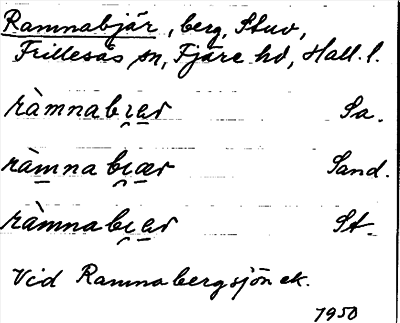 Ramnabjär, berg, Stuv,
Frillesås sn, Fjäre hd, Hall. l.
ràmnabɪ̯ær Sa.
ràmnabɪ̯ær Sand.
ràmnabɪ̯ær St.
Vid Ramnabergsjön ek.
1950